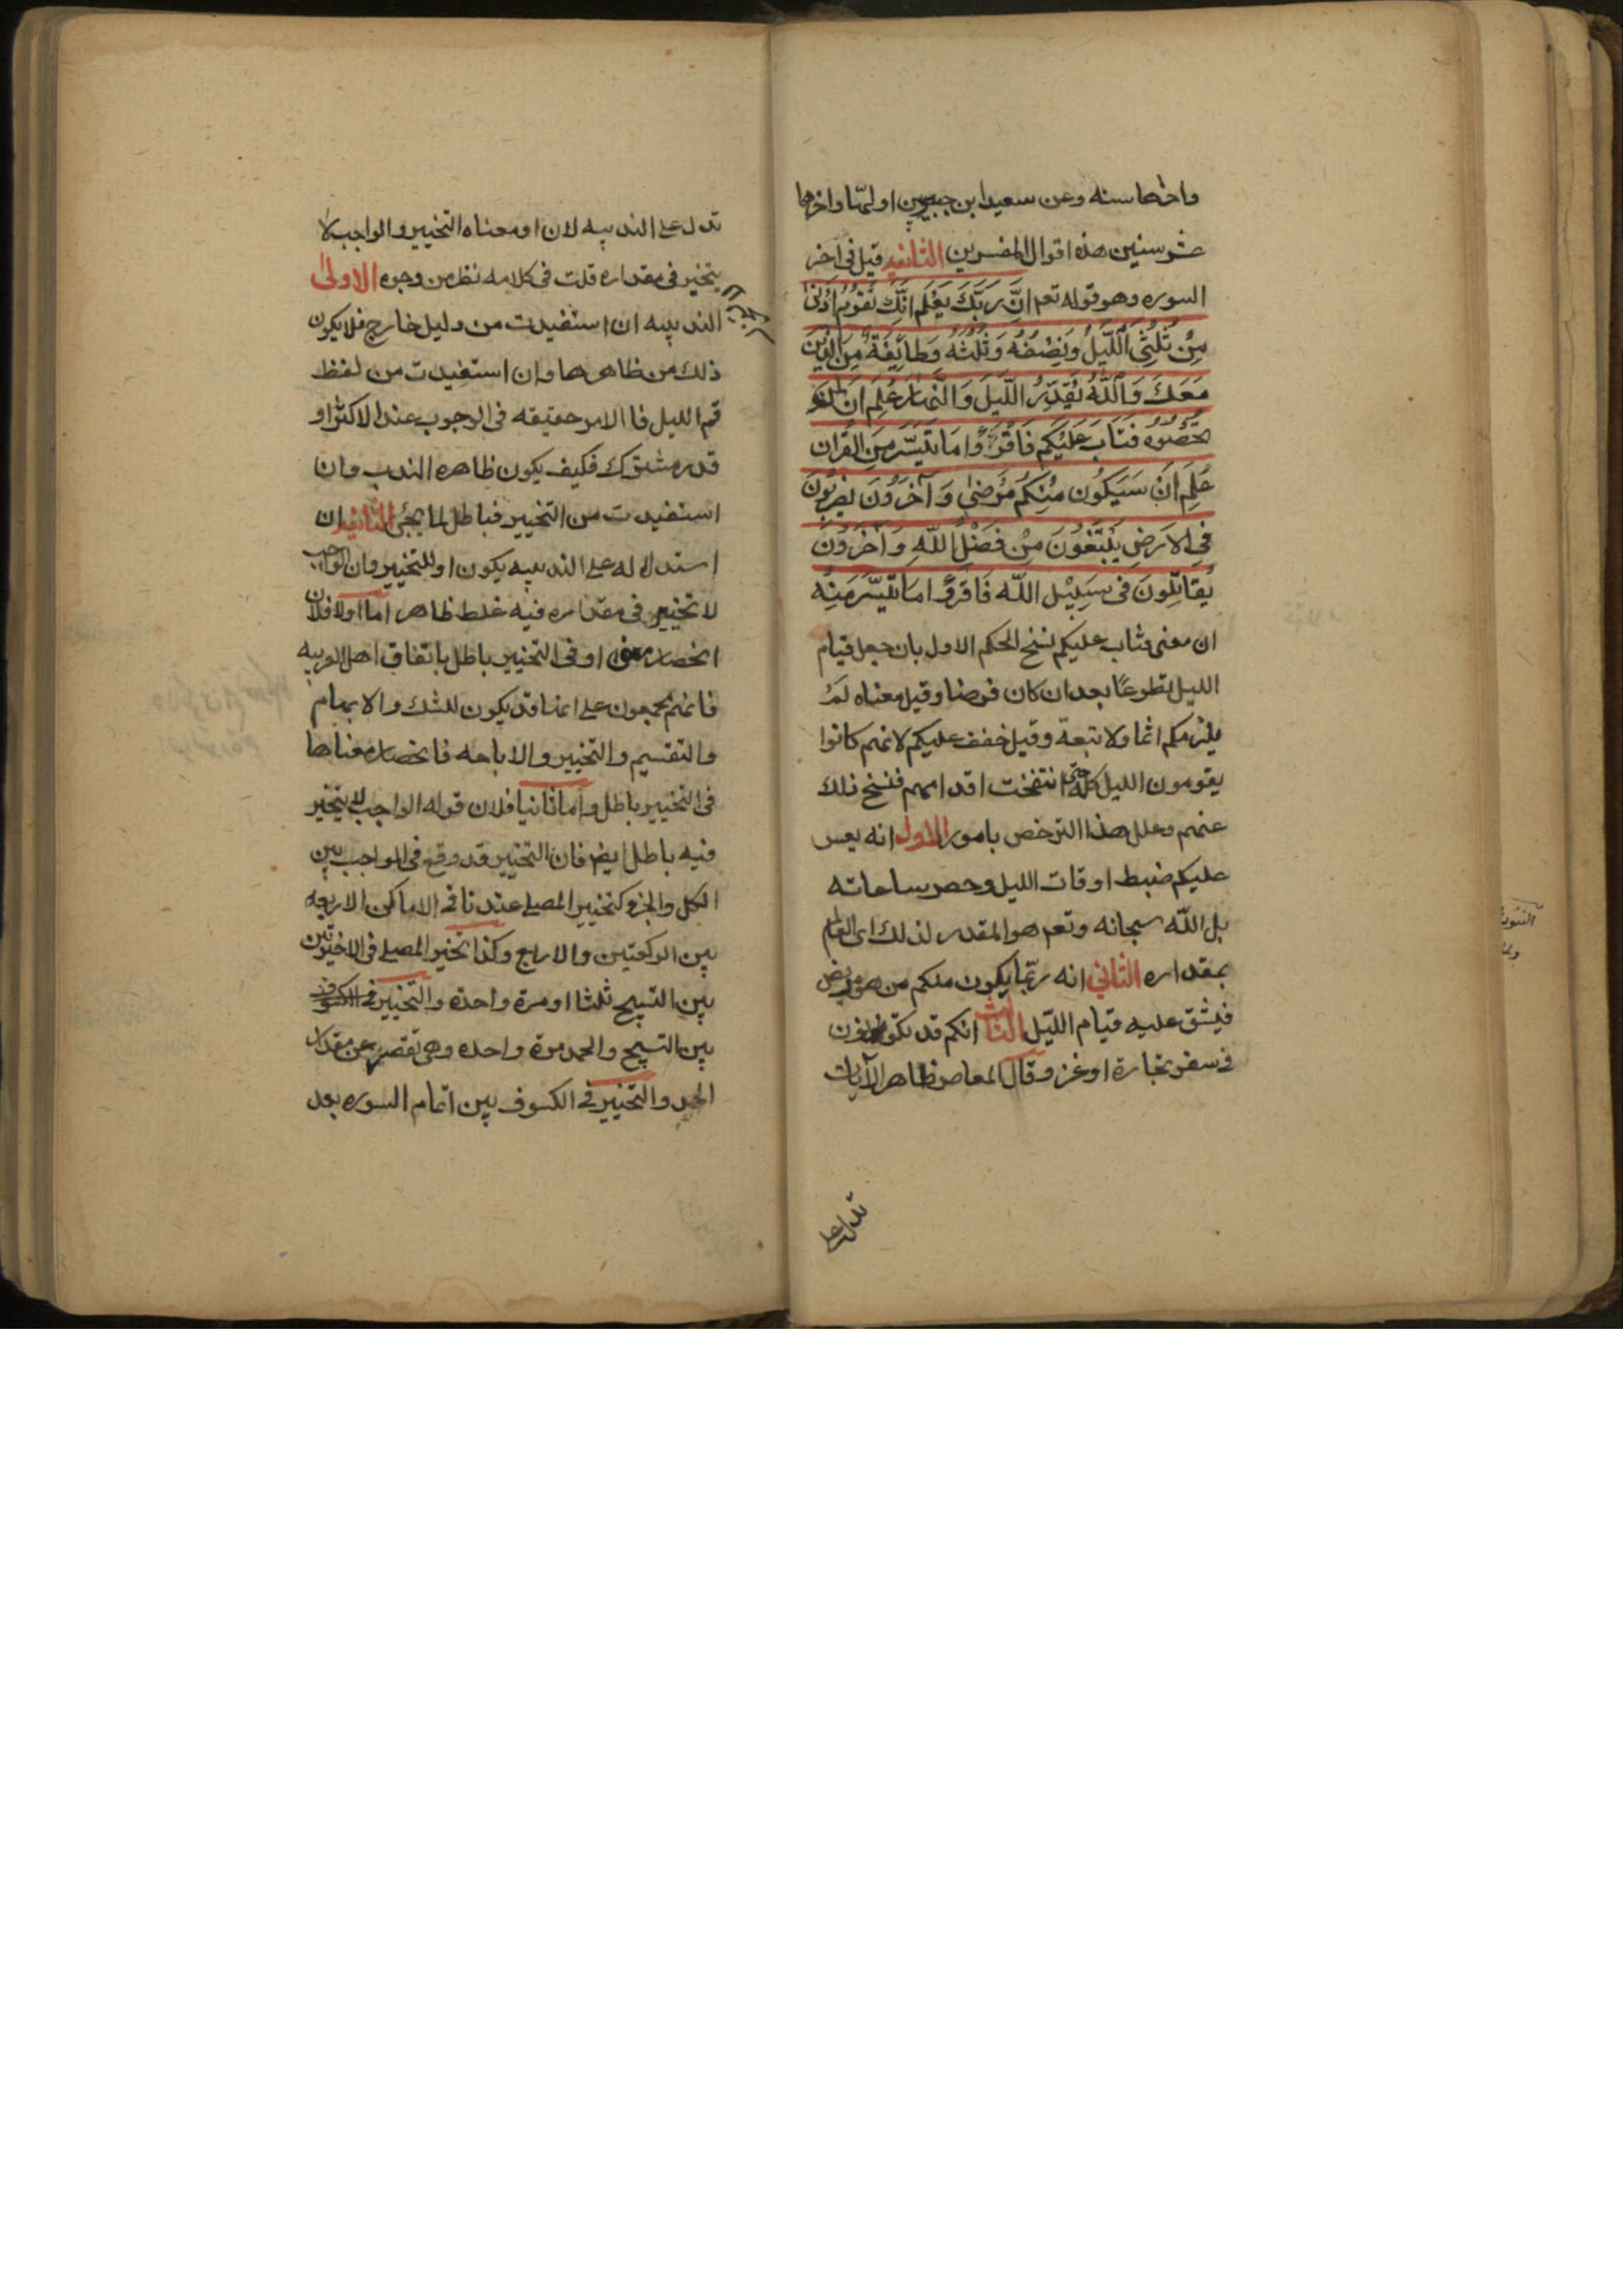 واخرها سنه وعن سعيد ابن جبير بين اولها واخرها
عشر سنين هذه اقوال المفسرين الثانيه قيل في اخر
السوره وهو قوله تعم اِنَّ رَبَّكَ يَعْلَم اَنَّكَ تَقوُمُ اَدْنىٰ
مِنْ ثُلُثَىِ اللَّيلُ وَنِصْفُهُ وَثُلُثُهُ وَطائِفَةٌ مِنَ الَّذينَ
مَعَكَ وَاللّهُ يُقَدِّرُ اللَّيلَ وَالنَّهارَ عَلِمَ اَنْ لَنْ
تُحْصُوُهُ فَتابَ عَلَيْكُم فَاقْرَؤُا ما تَيَسَّرَ مِنَ القُران
عَلِمَ اَنْ سَيَكُون مِنْكُم مَرْضىٰ وَآخَرُونَ يَضْرِبُونَ
فِى الاَرضِ يَبْتَغُونَ مِنْ فَضْلِ اللّهِ وَآخَرُونَ
يُقاتِلُونَ فى سَبِيْلِ اللّه فَاقرَؤُا ما تَيَسَّرَ مِنْهُ
ان معنى فتاب عليكم نسخ الحكم الاول بان جعل قيام
الليل تطوعًا بعد ان كان فرضا وقيل معناه لَمْ
يلزمكم اثما ولا تبعة وقيل خفف عليكم لانهم كانوا
يقومون الليل كلّه حتى انتفخت اقدامهم فنسخ ذلك
عنهم وعلل هذا الترخص بامور الاول انه يعسر
عليكم ضبط اوقات الليل وحصر ساعاته
بل اللّه سبحانه وتعم هو المقدر لذلك اى العالم
بمقداره الثاني انه ربّما يكون منكم من هو مريض
فيشق عليه قيام اللّيل الثالث انكم قد تكونون
في سفر تجارة او غزو قال المعاصر ظاهر الآيات
تدل على
تدل على الندبيه لان او معناه التخيير والواجب لا
يتخير في مقداره قلت في كلامه نظر من وجوه الاولىٰ
الندبيه ان استفيدت من دليل خارج فلا يكون
ذلك من ظاهرها وان استفيدت من لفظ
قم الليل فا الامر حقيقه في الوجوب عند الاكثر او
قدر مشترك فكيف يكون ظاهره الندب وان
استفيدت من التخيير فباطل لما يجئ الثانيه ان
استدلاله على الندبيه بكون او للتخيير وان الواجب
لا تخيير في مقداره فيه غلط ظاهر اما اولا فلان
انحصار معنى او في التخيير باطل باتفاق اهل العربيه
فانهم مجمعون على انها قد يكون للشك والابهام
والتقسيم والتخيير والاباحه فانحصار معناها
في التخيير باطل واما ثانيا فلان قوله الواجب لا يتخير
فيه باطل ايض فان التخيير قد وقع في الواجب بين
الكل والجزء كتخيير المصلي عندنا في الاماكن الاربعه
بين الركعتين والاربع وكذا تخيير المصلي في الاخيرتين
بين التسبيح ثلثا او مرة واحدة والتخيير في الكسوف
بين التسبيح والحمد مرة واحده وهي تقصر عن مقدار
الحمد والتخيير في الكسوف بين اتمام السوره بعد